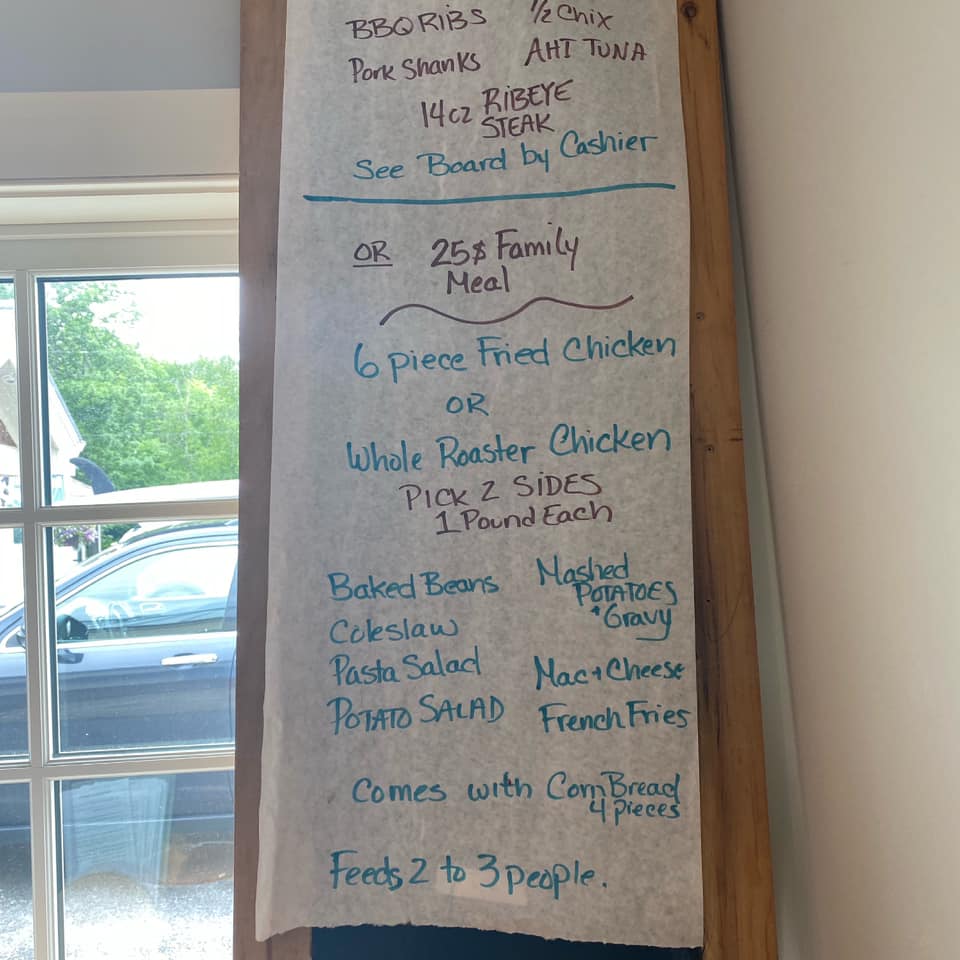 BBQ RiBS 1/2 Chix
Pork Shanks AHI TUNA
14oz RiBEYE
STEAK
See Board by Cashier
OR 25$ Family
Meal
6 piece Fried Chicken
OR
Whole Roaster Chicken
PICK 2 SiDES
1 Pound Each
Baked Beans Mashed
POTATOES
+ Gravy
Coleslaw
Pasta Salad Mac + Cheese
POTATO SALAD French Fries
Comes with Corn Bread
4 pieces
Feeds 2 to 3 people.